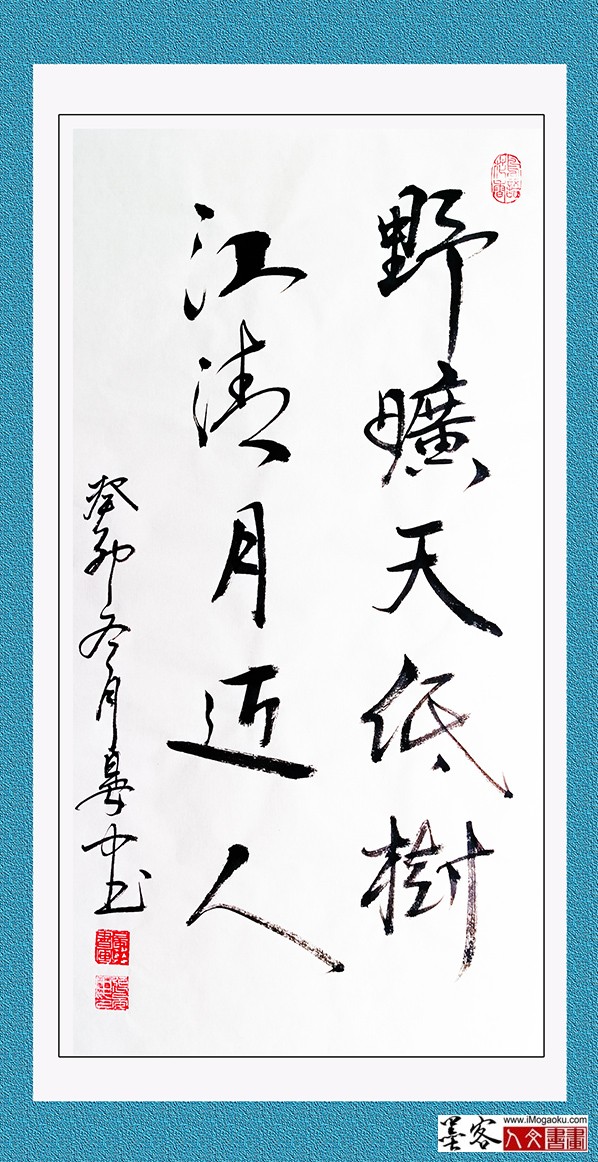 野曠天低樹
江清月近人
癸卯冬月
墨客
www.iMogaoku.com
人文書畫